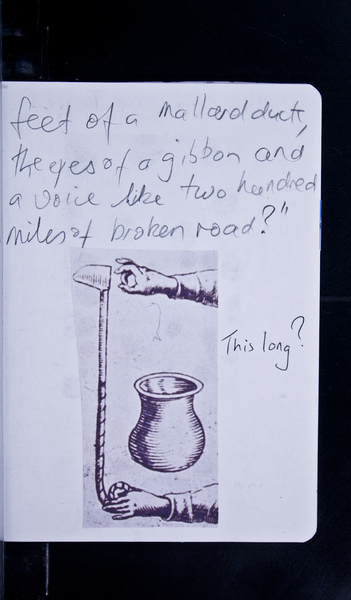 feet of a mallard duck,
the eyes of a gibbon and
a voice like two hundred
miles of broken road?"
This long?